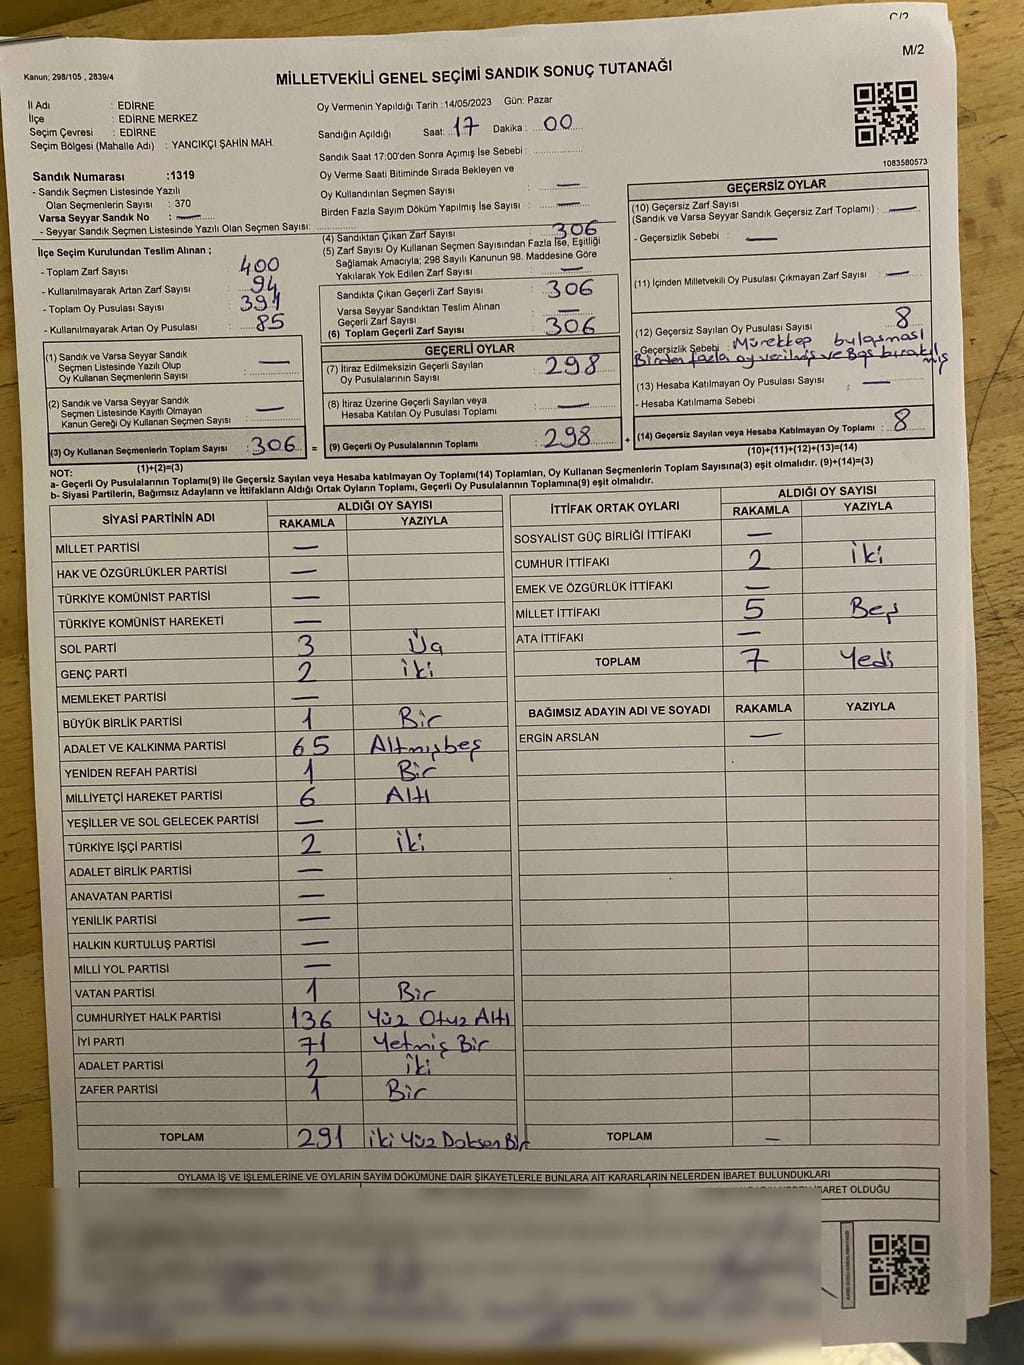 C/2
M/2
Kanun; 298/105 , 2839/4
MİLLETVEKİLİ GENEL SEÇİMİ SANDIK SONUÇ TUTANAĞI
İl Adı : EDİRNE
İlçe : EDİRNE MERKEZ
Seçim Çevresi : EDİRNE
Seçim Bölgesi (Mahalle Adı) : YANCIKÇI ŞAHİN MAH.
Oy Vermenin Yapıldığı Tarih :14/05/2023 Gün: Pazar
Sandığın Açıldığı Saat: 17 Dakika : 00
Sandık Saat 17:00'den Sonra Açımış İse Sebebi :
Oy Verme Saati Bitiminde Sırada Bekleyen ve
Oy Kullandırılan Seçmen Sayısı : —
Birden Fazla Sayım Döküm Yapılmış İse Sayısı : —
1083580573
Sandık Numarası :1319
- Sandık Seçmen Listesinde Yazılı
Olan Seçmenlerin Sayısı : 370
Varsa Seyyar Sandık No : —
- Seyyar Sandık Seçmen Listesinde Yazılı Olan Seçmen Sayısı:
İlçe Seçim Kurulundan Teslim Alınan ;
- Toplam Zarf Sayısı : 400
- Kullanılmayarak Artan Zarf Sayısı : 94
- Toplam Oy Pusulası Sayısı : 391
- Kullanılmayarak Artan Oy Pusulası : 85
(1) Sandık ve Varsa Seyyar Sandık
Seçmen Listesinde Yazılı Olup
Oy Kullanan Seçmenlerin Sayısı : —
(2) Sandık ve Varsa Seyyar Sandık
Seçmen Listesinde Kayıtlı Olmayan
Kanun Gereği Oy Kullanan Seçmen Sayısı : —
(3) Oy Kullanan Seçmenlerin Toplam Sayısı : 306 =
(1)+(2)=(3)
(4) Sandıktan Çıkan Zarf Sayısı : 306
(5) Zarf Sayısı Oy Kullanan Seçmen Sayısından Fazla İse, Eşitliği
Sağlamak Amacıyla; 298 Sayılı Kanunun 98. Maddesine Göre
Yakılarak Yok Edilen Zarf Sayısı : —
Sandıkta Çıkan Geçerli Zarf Sayısı : 306
Varsa Seyyar Sandıktan Teslim Alınan
Geçerli Zarf Sayısı : —
(6) Toplam Geçerli Zarf Sayısı : 306
GEÇERLİ OYLAR
(7) İtiraz Edilmeksizin Geçerli Sayılan
Oy Pusulalarının Sayısı : 298
(8) İtiraz Üzerine Geçerli Sayılan veya
Hesaba Katılan Oy Pusulası Toplamı : —
(9) Geçerli Oy Pusulalarının Toplamı : 298 +
GEÇERSİZ OYLAR
(10) Geçersiz Zarf Sayısı
(Sandık ve Varsa Seyyar Sandık Geçersiz Zarf Toplamı) : —
- Geçersizlik Sebebi : —
(11) İçinden Milletvekili Oy Pusulası Çıkmayan Zarf Sayısı : —
(12) Geçersiz Sayılan Oy Pusulası Sayısı : 8
- Geçersizlik Sebebi : Mürekkep bulaşması
Birden fazla oy verilmiş ve Boş bırakılmış
(13) Hesaba Katılmayan Oy Pusulası Sayısı : —
- Hesaba Katılmama Sebebi :
(14) Geçersiz Sayılan veya Hesaba Katılmayan Oy Toplamı : 8
(10)+(11)+(12)+(13)=(14)
NOT:
a- Geçerli Oy Pusulalarının Toplamı(9) ile Geçersiz Sayılan veya Hesaba katılmayan Oy Toplamı(14) Toplamları, Oy Kullanan Seçmenlerin Toplam Sayısına(3) eşit olmalıdır. (9)+(14)=(3)
b- Siyasi Partilerin, Bağımsız Adayların ve İttifakların Aldığı Ortak Oyların Toplamı, Geçerli Oy Pusulalarının Toplamına(9) eşit olmalıdır.
SİYASİ PARTİNİN ADI ALDIĞI OY SAYISI
RAKAMLA YAZIYLA
MİLLET PARTİSİ —
HAK VE ÖZGÜRLÜKLER PARTİSİ —
TÜRKİYE KOMÜNİST PARTİSİ —
TÜRKİYE KOMÜNİST HAREKETİ —
SOL PARTİ 3 Üç
GENÇ PARTİ 2 İki
MEMLEKET PARTİSİ —
BÜYÜK BİRLİK PARTİSİ 1 Bir
ADALET VE KALKINMA PARTİSİ 65 Altmışbeş
YENİDEN REFAH PARTİSİ 1 Bir
MİLLİYETÇİ HAREKET PARTİSİ 6 Altı
YEŞİLLER VE SOL GELECEK PARTİSİ —
TÜRKİYE İŞÇİ PARTİSİ 2 İki
ADALET BİRLİK PARTİSİ —
ANAVATAN PARTİSİ —
YENİLİK PARTİSİ —
HALKIN KURTULUŞ PARTİSİ —
MİLLİ YOL PARTİSİ —
VATAN PARTİSİ 1 Bir
CUMHURİYET HALK PARTİSİ 136 Yüz Otuz Altı
İYİ PARTİ 71 Yetmiş Bir
ADALET PARTİSİ 2 İki
ZAFER PARTİSİ 1 Bir
TOPLAM 291 İki Yüz Doksan Bir
İTTİFAK ORTAK OYLARI ALDIĞI OY SAYISI
RAKAMLA YAZIYLA
SOSYALİST GÜÇ BİRLİĞİ İTTİFAKI —
CUMHUR İTTİFAKI 2 İki
EMEK VE ÖZGÜRLÜK İTTİFAKI —
MİLLET İTTİFAKI 5 Beş
ATA İTTİFAKI —
TOPLAM 7 Yedi
BAĞIMSIZ ADAYIN ADI VE SOYADI RAKAMLA YAZIYLA
ERGİN ARSLAN —
TOPLAM —
OYLAMA İŞ VE İŞLEMLERİNE VE OYLARIN SAYIM DÖKÜMÜNE DAİR ŞİKAYETLERLE BUNLARA AİT KARARLARIN NELERDEN İBARET BULUNDUKLARI
İBARET OLDUĞU